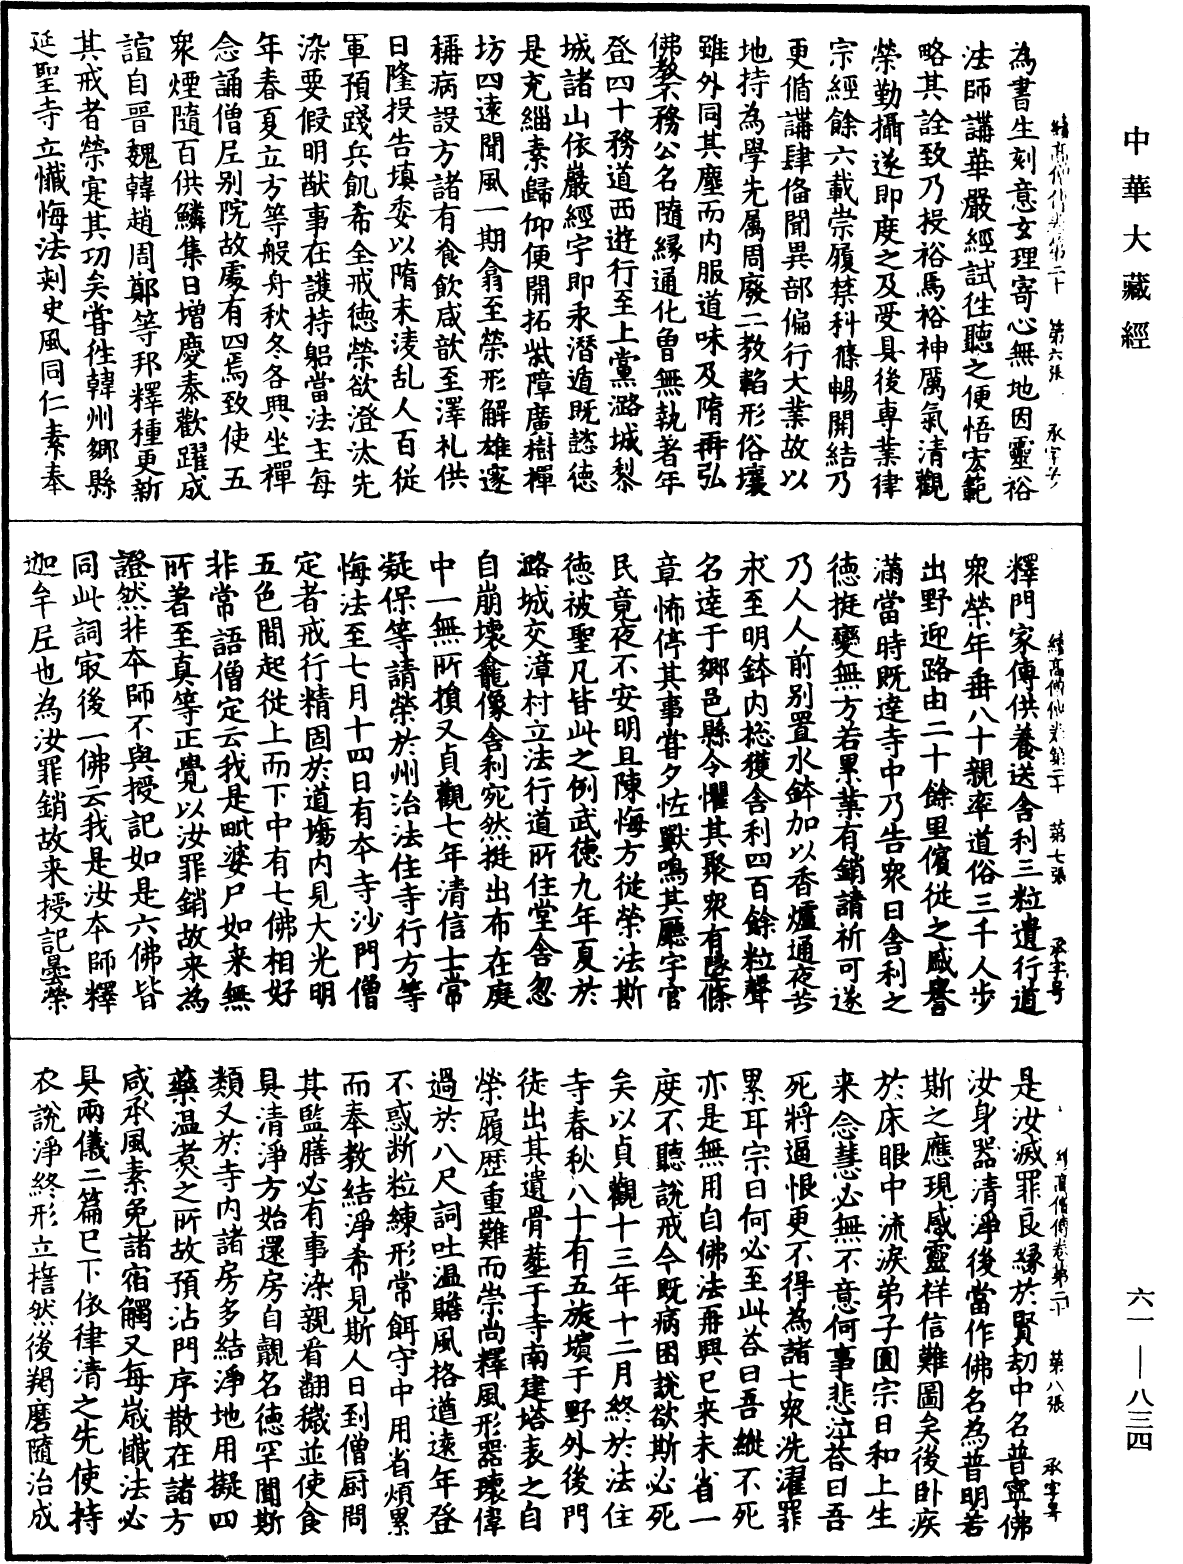 中華大藏經
為書生刻意玄理寄心無地因靈裕
法師講華嚴經試往聽之便悟宏範
略其詮致乃投裕焉裕神厲氣清觀
榮勤攝遂即度之及受具後專業律
宗經餘六載崇履禁科條暢開結乃
更循講肆俻聞異部偏行大業故以
地持為學先属周廢二教韜形俗壤
雖外同其塵而内服道味及隋再弘
佛教不務公名隨緣通化曾無執著年
登四十務道西遊行至上黨潞城梨
城諸山依巖經宇即永潛遁既懿德
是充緇素歸仰便開拓㢡障廣樹禪
坊四遠聞風一期翕至榮形解雄邃
稱病設方諸有飡飲咸歆至澤礼供
日隆投告填委以隋末凌乱人百從
軍預踐兵飢希全戒德榮欲澄汰先
染要假明猷事在護持躬當法主每
年春夏立方等般舟秋冬各興坐禪
念誦僧尼别院故處有四焉致使五
衆煙隨百供鱗集日增慶泰歡躍成
諠自晉魏韓趙周鄭等邦釋種更新
其戒者榮寔其功矣嘗往韓州鄉縣
延聖寺立懺悔法刺史風同仁素奉
續高僧傳卷第二十 第七張 承字号
釋門家傳供養送舍利三粒遺行道
衆榮年垂八十親率道俗三千人步
出野迎路由二十餘里儐從之盛譽
滿當時既達寺中乃告衆曰舍利之
德挺變無方若累業有銷請祈可遂
乃人人前别置水鉢加以香爐通夜苦
求至明鉢内揔獲舍利四百餘粒聲
名達于鄉邑縣令懼其聚衆有墜條
章怖停其事當夕怪獸鳴其廳宇官
民竟夜不安明旦陳悔方從榮法斯
德被聖凡皆此之例武德九年夏於
潞城交漳村立法行道所住堂舍忽
自崩壞龕像舍利宛然挺出布在庭
中一無所損又貞觀七年清信士常
凝保等請榮於州治法住寺行方等
悔法至七月十四日有本寺沙門僧
定者戒行精固於道塲内見大光明
五色間起從上而下中有七佛相好
非常語僧定云我是毗婆尸如来無
所著至真等正覺以汝罪銷故来為
證然非本師不與授記如是六佛皆
同此詞㝡後一佛云我是汝本師釋
迦牟尼也為汝罪銷故来授記曇榮
續高僧傳卷第二十 第八張 承字号
是汝滅罪良緣於賢劫中名普寧佛
汝身器清淨後當作佛名為普明若
斯之應現感靈祥信難圖矣後卧疾
於床眼中流淚弟子圓宗曰和上生
来念慧必無不意何事悲泣荅曰吾
死將逼恨更不得為諸七衆洗濯罪
累耳宗曰何必至此荅曰吾縱不死
亦是無用自佛法再興已来未省一
度不聽說戒今既病困說欲斯必死
矣以貞觀十三年十二月終於法住
寺春秋八十有五旋殯于野外後門
徒出其遺骨葬于寺南建塔表之自
榮履歷重難而崇尚釋風形器瓌偉
過於八尺詞吐温贍風格遒遠年登
不惑断粒練形常餌守中用省煩累
而奉教結淨希見斯人日到僧厨問
其監膳必有事染親看翻穢並使食
具清淨方始還房自觀名德罕聞斯
類又於寺内諸房多結淨地用擬四
藥温煑之所故預沾門序散在諸方
咸承風素免諸宿觸又每歲懺法必
具兩儀二篇已下依律清之先使持
衣說淨終形立㩀然後羯磨隨治成
六一—八三四